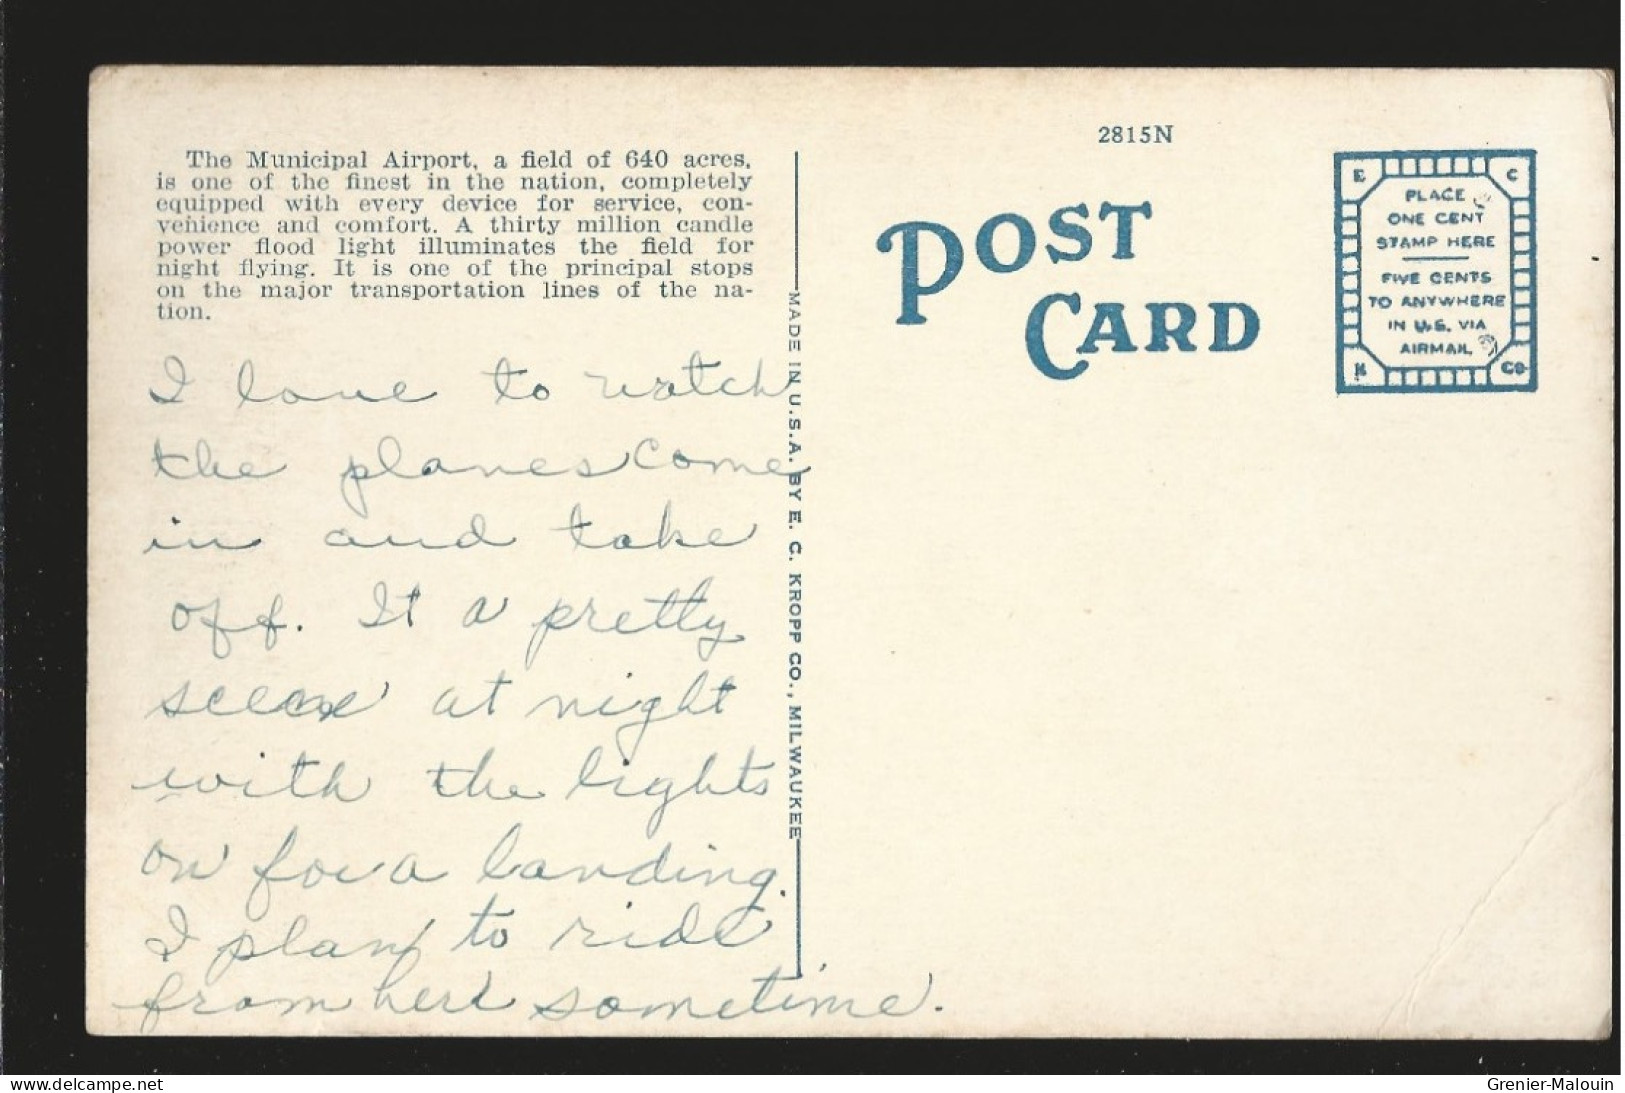 The Municipal Airport, a field of 640 acres,
is one of the finest in the nation, completely
equipped with every device for service, con-
venience and comfort. A thirty million candle
power flood light illuminates the field for
night flying. It is one of the principal stops
on the major transportation lines of the na-
tion.
I love to watch
the planes come
in and take
off. It a pretty
scene at night
with the lights
on for a landing.
I plan to ride
from here sometime.
MADE IN U.S.A. BY E. C. KROPP CO., MILWAUKEE
2815N
POST
CARD
E C
PLACE
ONE CENT
STAMP HERE
FIVE CENTS
TO ANYWHERE
IN U.S. VIA
AIRMAIL
K CO
delcampe.net
Grenier-Malouin